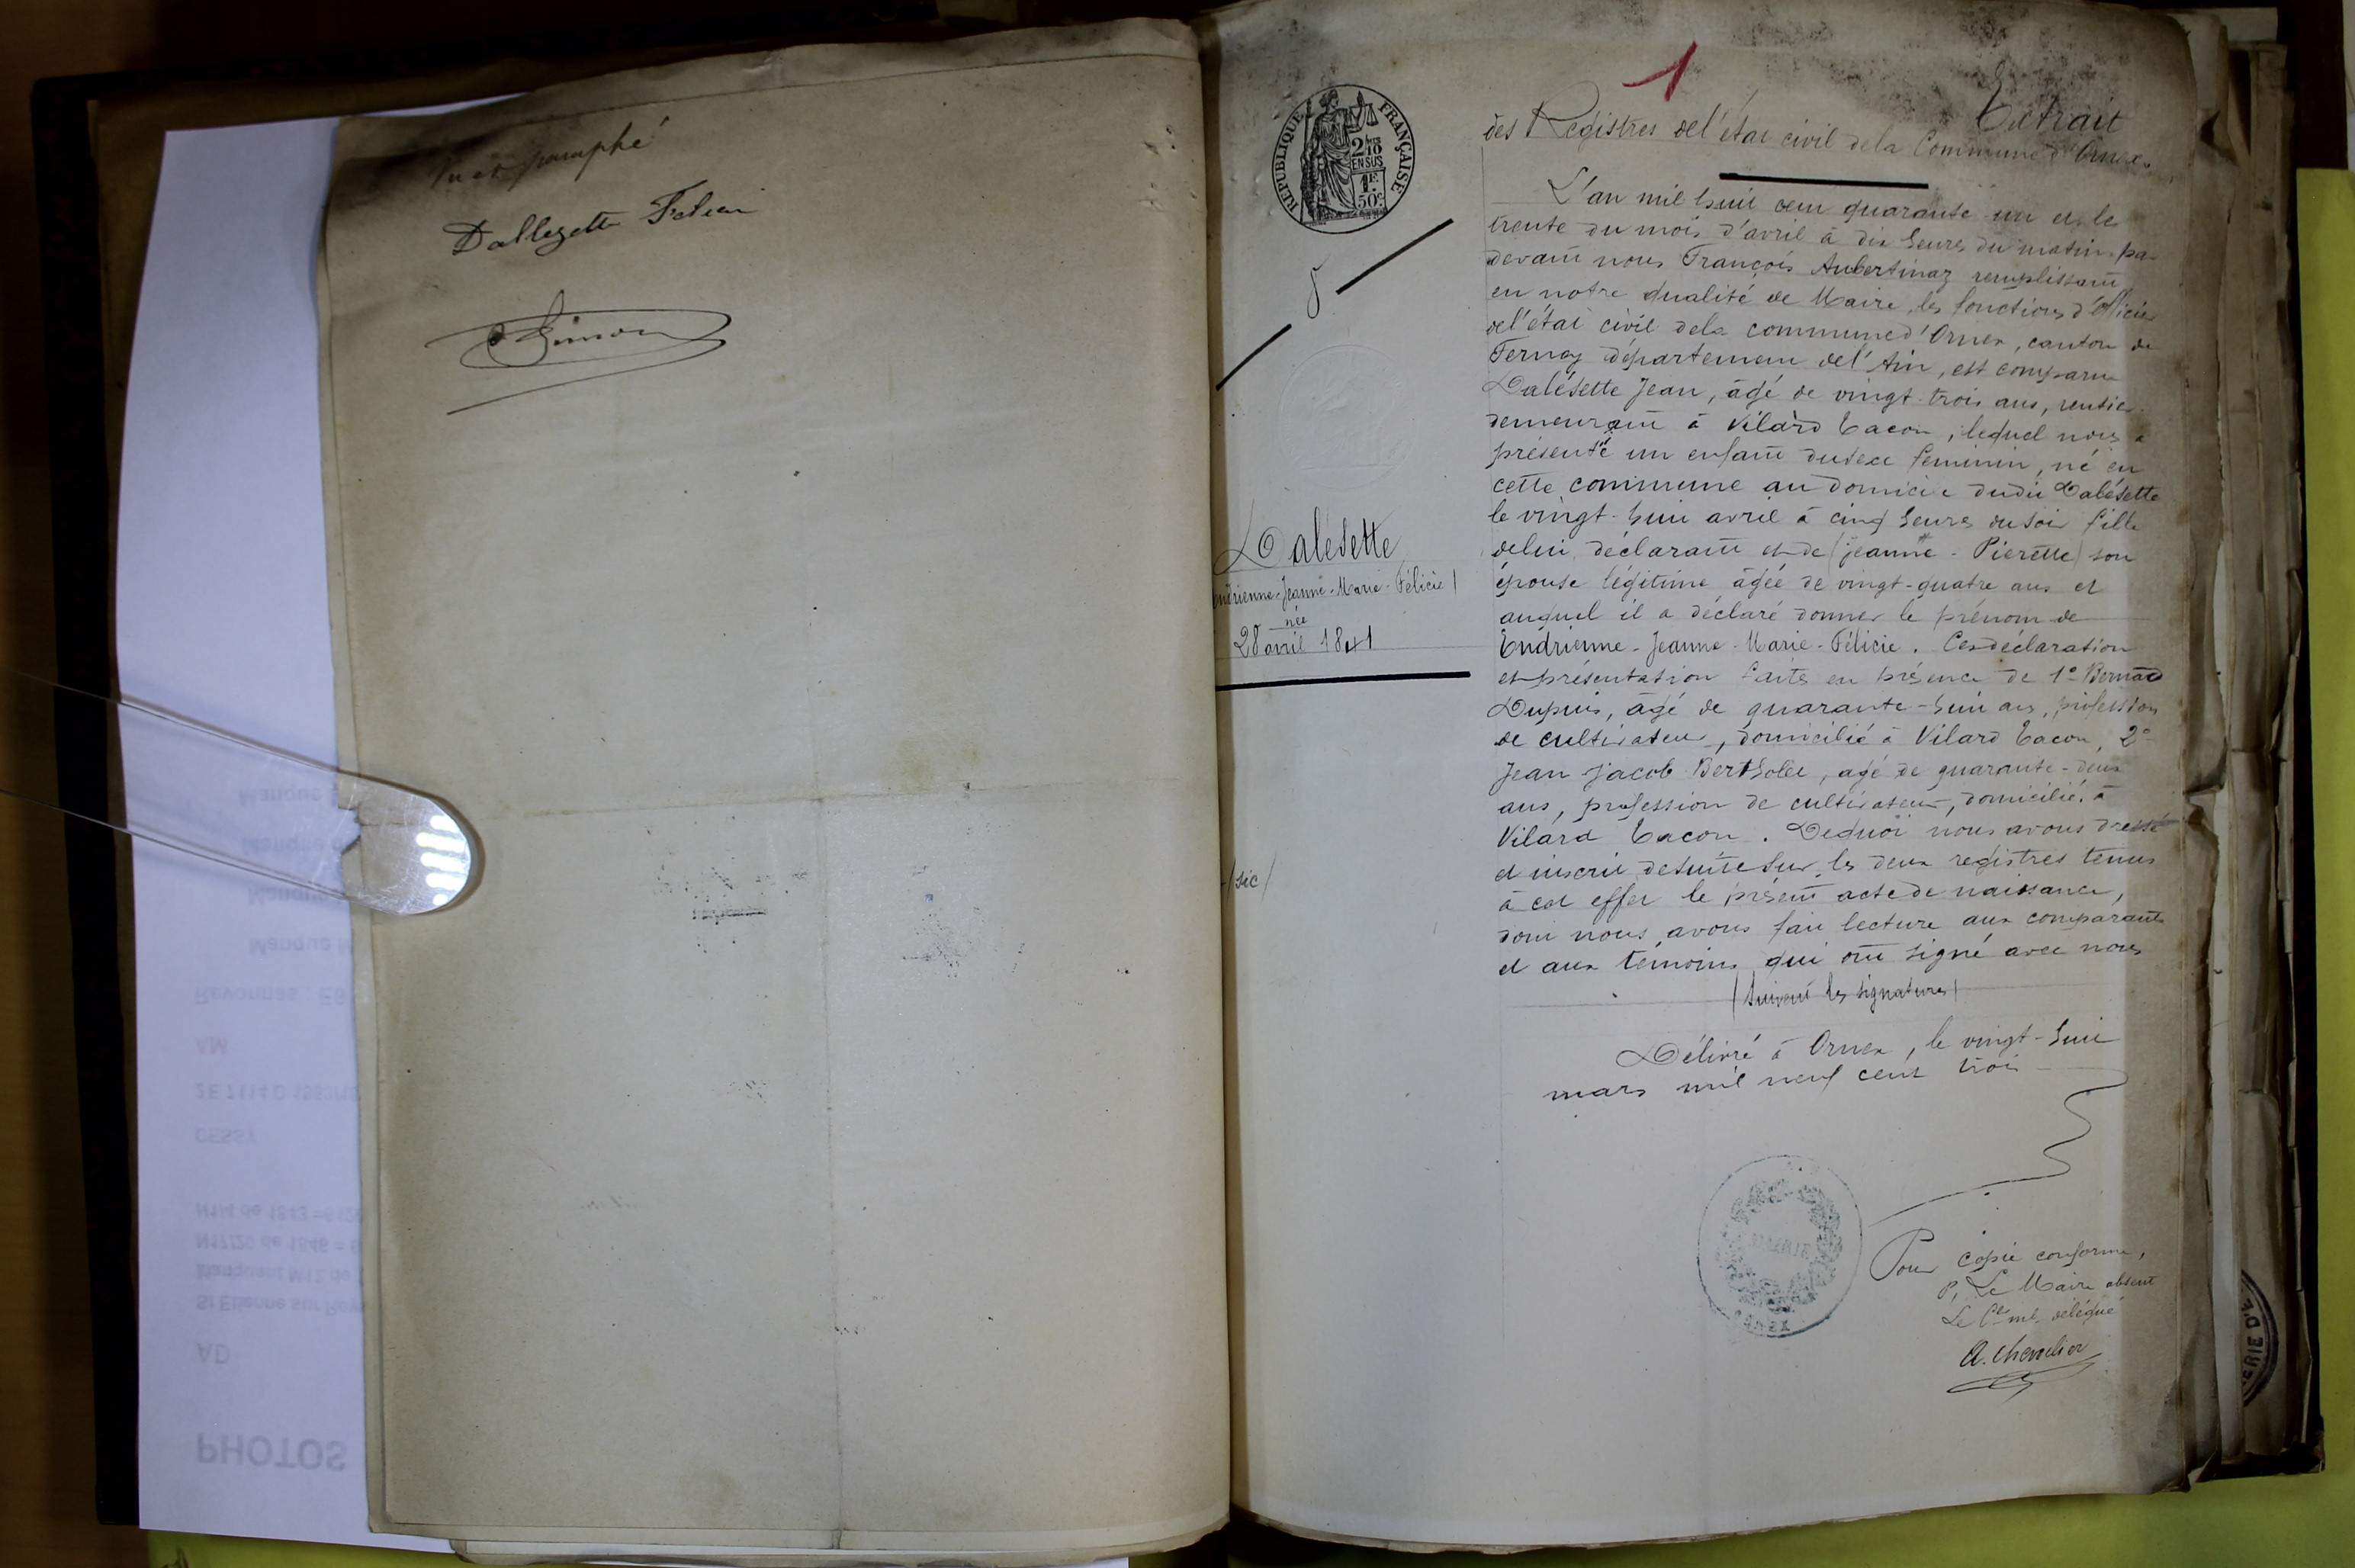 Vu et paraphé
Dallezette Félicie
Simon
1
Extrait
des Registres de l'état civil de la Commune d'Ornex.
REPUBLIQUE FRANÇAISE
2/10
EN SUS
1F
50c
8
L'an mil huit cent quarante-un et le
trente du mois d'avril à dix heures du matin, pa
devant nous François Aubertinaz remplissant
en notre qualité de Maire, les fonctions d'officier
de l'état civil de la commune d'Ornex, canton de
Fernay département de l'Ain, est comparu
Dalésette Jean, âgé de vingt-trois ans, rentier
demeurant à Vilard Tacon, lequel nous a
présenté un enfant du sexe féminin, né en
cette commune au domicile dudit Dalésette
le vingt-huit avril à cinq heures du soir fille
de lui déclarant et de (jeanne-Pierette) son
épouse légitime âgée de vingt-quatre ans et
auquel il a déclaré donner le prénom de
Endrienne-Jeanne-Marie-Félicie. Ces déclaration
et présentation faites en présence de 1° Bernard
Dupuis, âgé de quarante-huit ans, profession
de cultivateur, domicilié à Vilard Tacon, 2°
Jean Jacob Bertholet, agé de quarante-deux
ans, profession de cultivateur, domicilié à
Vilard Tacon. De quoi nous avons dressé
et inscrit de suite sur les deux registres tenus
à cet effet le présent acte de naissance,
dont nous avons fait lecture aux comparants
et aux témoins qui ont signé avec nous
(Suivent les signatures)
Dalésette
Endrienne-Jeanne-Marie-Félicie
née
28 avril 1841
/sic/
Délivré à Ornex, le vingt-huit
mars mil neuf cent trois
Pour copie conforme,
P. Le Maire absent
Le Cer mal délégué
A. Chevalier
ORNEX
ERIE D'E
Manque
Manque
Manque
Manque N
Revonnas : E6
AM
2E 7114 D 1883/13
CESSY
N1/4 de 1843
N17/20 de 1846
Manquent N12 de
St Etienne sur Reys
AD
PHOTOS